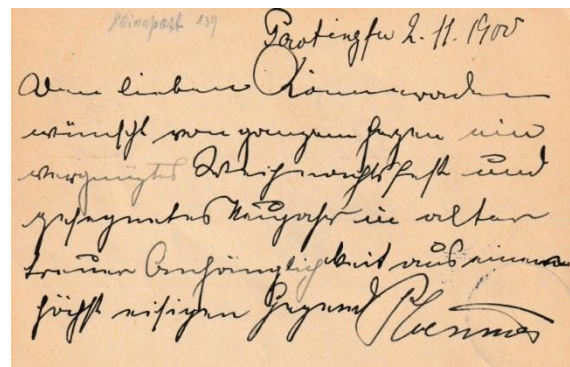 Chinapost 139
Paotingfu 2. 11. 1900
Den lieben Kameraden
wünscht von ganzem Herzen ein
vergnügtes Weihnachtsfest und
gesegnetes Neujahr in alter
treuer Anhänglichkeit aus einer
höchst eisigen Gegend